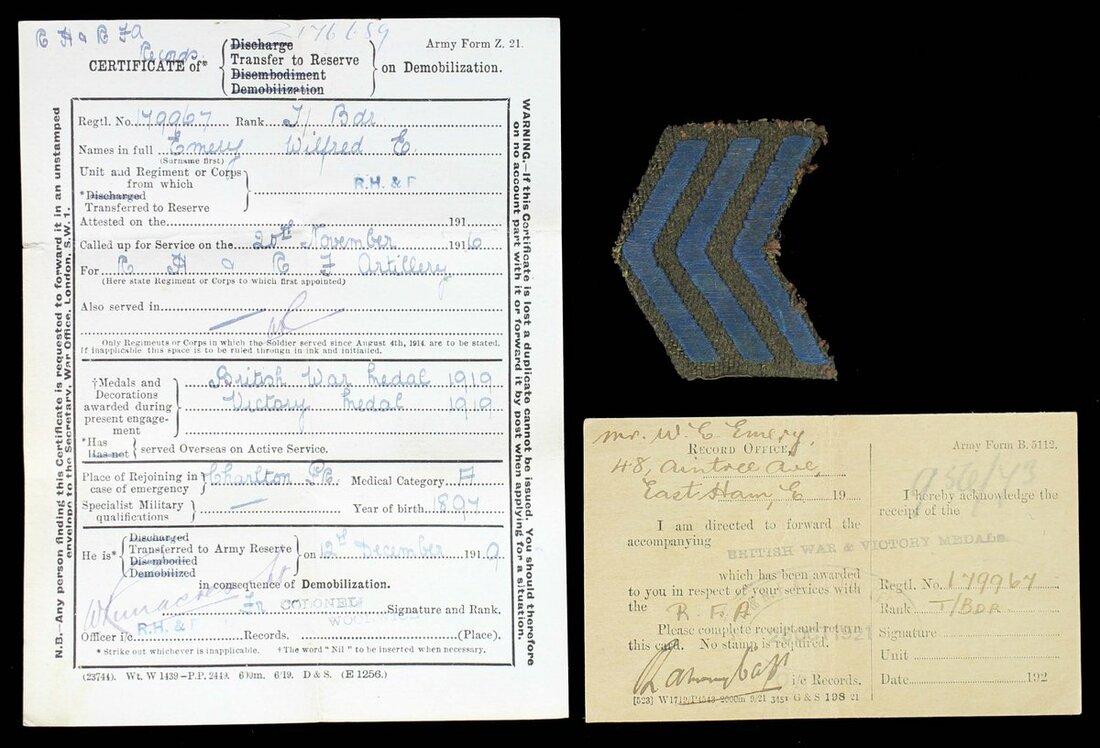 R H & R F A
Records.
Army Form Z. 21.
CERTIFICATE of*
Discharge
Transfer to Reserve
Disembodiment
Demobilization
on Demobilization.
Regtl. No. 179967 Rank T/ Bdr
Names in full Emery Wilfred E.
(Surname first)
Unit and Regiment or Corps
from which
*Discharged
Transferred to Reserve
R.H. & F
Attested on the 191
Called up for Service on the 20th November 1916
For R H & R F Artillery
(Here state Regiment or Corps to which first appointed)
Also served in
Only Regiments or Corps in which the Soldier served since August 4th, 1914, are to be stated.
If inapplicable this space is to be ruled through in ink and initialled.
†Medals and
Decorations
awarded during
present engage-
ment
British War Medal 1919
Victory Medal 1919
*Has
Has not
served Overseas on Active Service.
Place of Rejoining in
case of emergency
Charlton Pk. Medical Category A
Specialist Military
qualifications
— Year of birth 1897
He is*
Discharged
Transferred to Army Reserve
Disembodied
Demobilized
on 12th December 1919
in consequence of Demobilization.
For COLONEL Signature and Rank.
WOOLWICH
R.H. & F
Officer i/c Records. (Place).
* Strike out whichever is inapplicable. † The word "Nil" to be inserted when necessary.
(23744). Wt. W 1439—P.P. 2449. 600m. 6/19. D & S. (E 1256.)
N.B.—Any person finding this Certificate is requested to forward it in an unstamped
envelope to the Secretary, War Office, London, S.W. 1.
WARNING.—If this Certificate is lost a duplicate cannot be issued. You should therefore
on no account part with it or forward it by post when applying for a situation.
Mr. W. E. Emery,
RECORD OFFICE,
48, Aintree Ave,
East Ham, E 19
I am directed to forward the
accompanying
BRITISH WAR & VICTORY MEDALS.
which has been awarded
to you in respect of your services with
the R. F. A
Please complete receipt and return
this card. No stamp is required.
1921
i/c Records.
Army Form B. 5112.
I hereby acknowledge the
receipt of the
Regtl. No. 179967
Rank T/BDR
Signature
Unit
Date 192